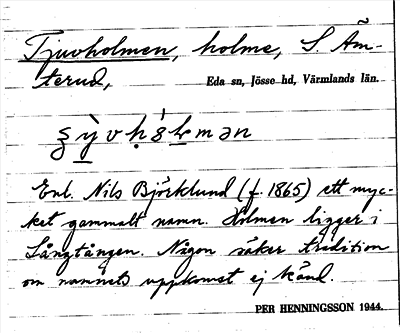 Tjuvholmen, holme, S Åm-
terud,
Eda sn, Jösse hd, Värmlands län.
Enl. Nils Björklund (f. 1865) ett myc-
ket gammalt namn. Holmen ligger i
Långtången. Någon säker tradition
om namnets uppkomst ej känd.
PER HENNINGSSON 1944.